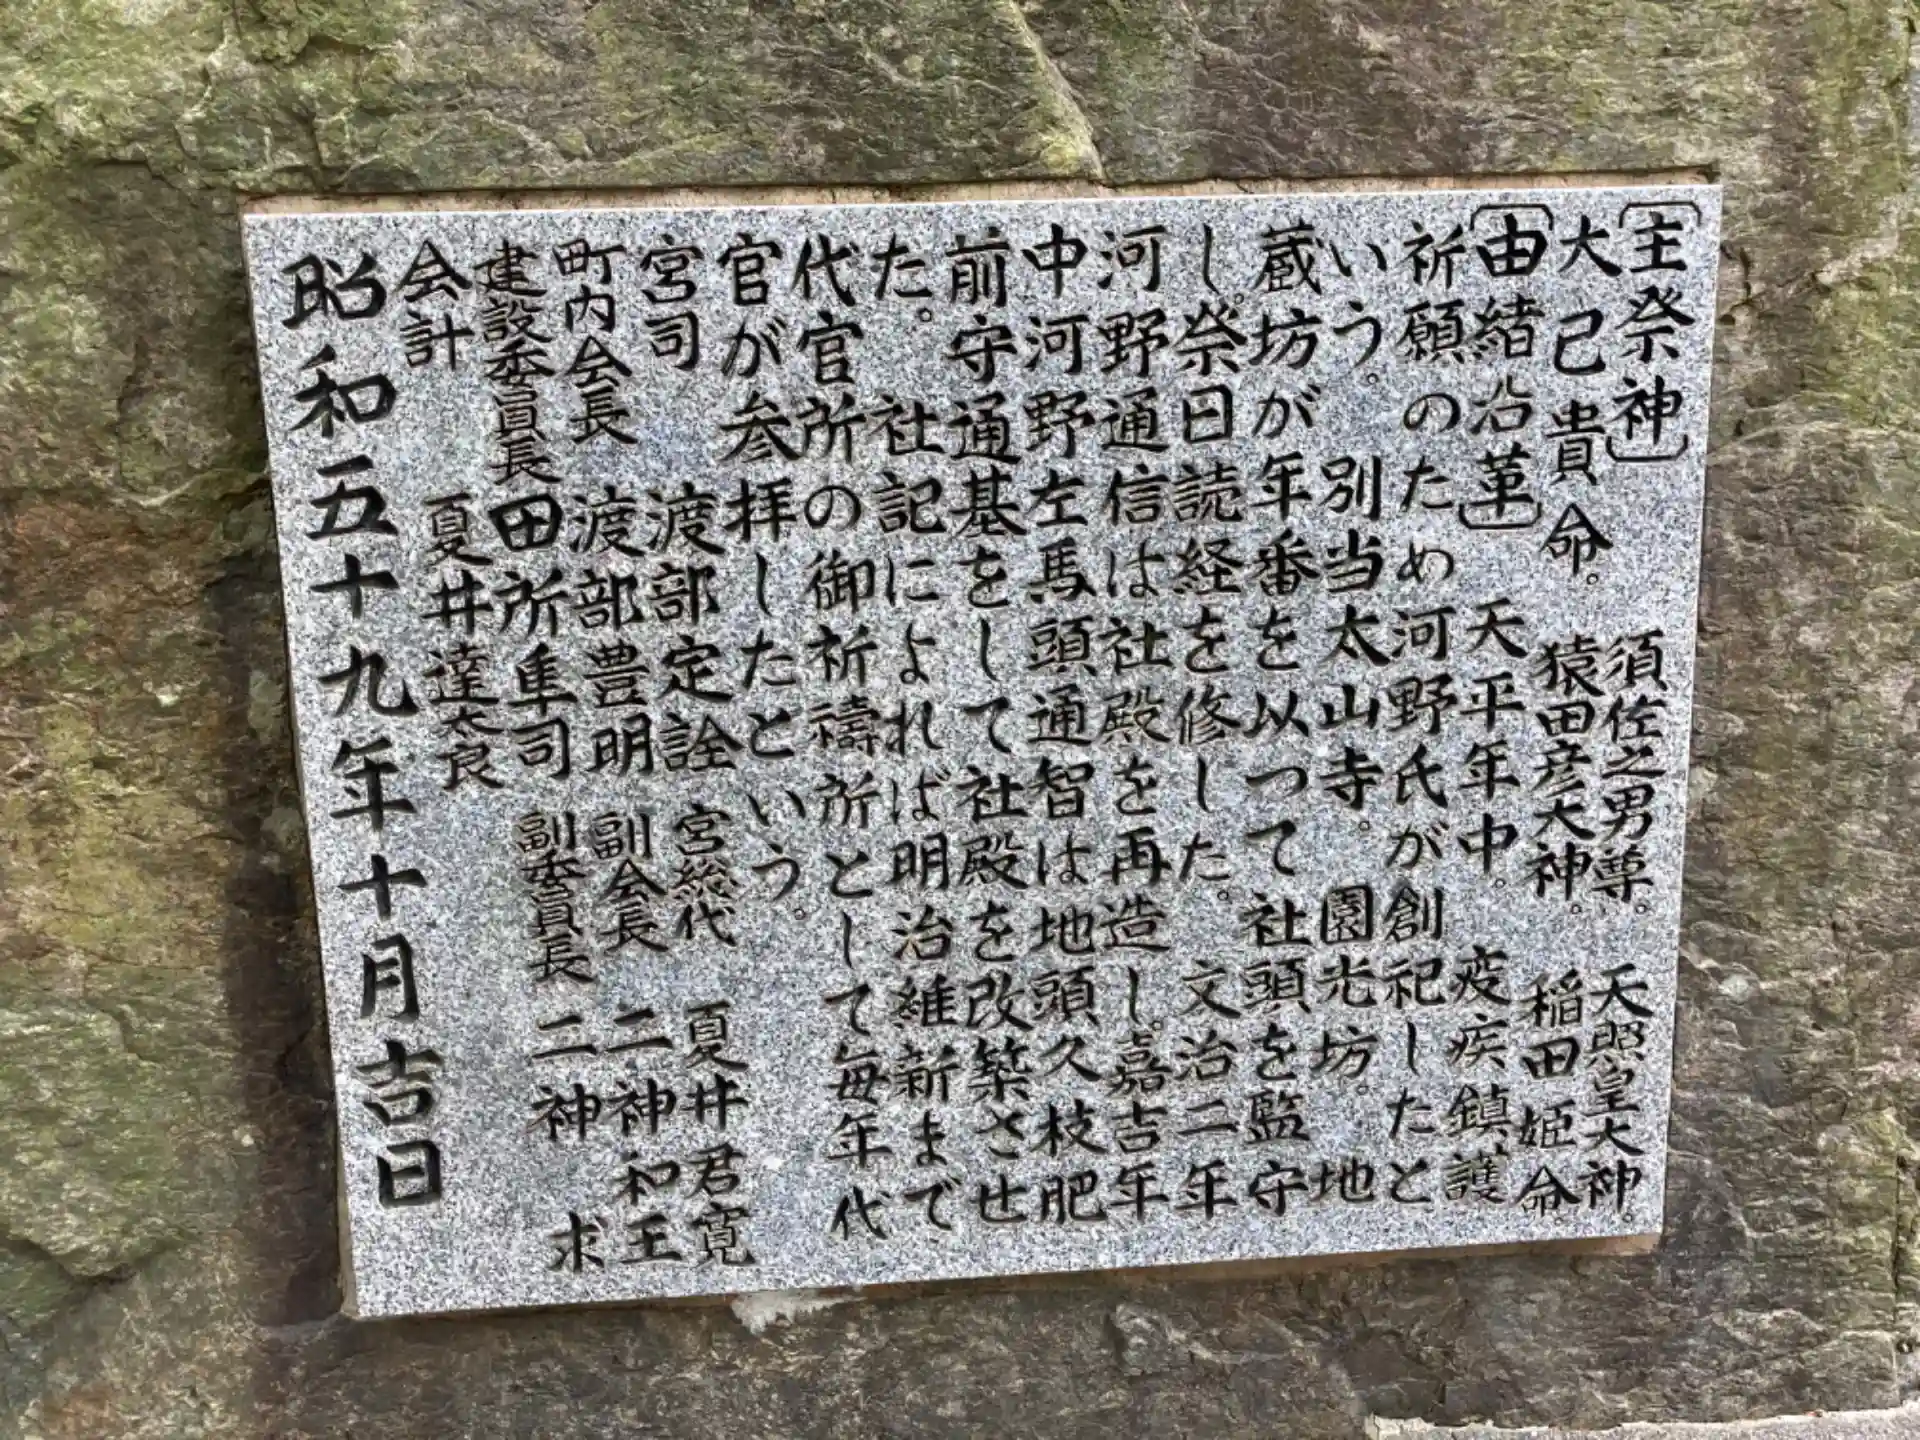 〔主祭神〕 須佐之男尊。 天照皇大神。
大己貴命。 猿田彦大神。 稲田姫命。
〔由緒沿革〕 天平年中。 疫疾鎮、護
祈願のため河野氏が創祀したと
いう。 別当太山寺。 園光坊。 地
蔵坊が年番を以つて社頭を監守
し。祭日読経を修した。 文治二年
河野通信は社殿を再造し。嘉吉年
中河野左馬頭通智は地頭久枝肥
前守通基をして社殿を改築させ
た。 社記によれば明治維新まで
代官所の御祈禱所として毎年代
官が参拝したという。
宮司 渡部定詮 宮総代 夏井君寛
町内会長 渡部豊明 副会長 二神和王
建設委員長 田所隼司 副委員長 二神 求
会計 夏井達太良
昭和五十九年十月吉日